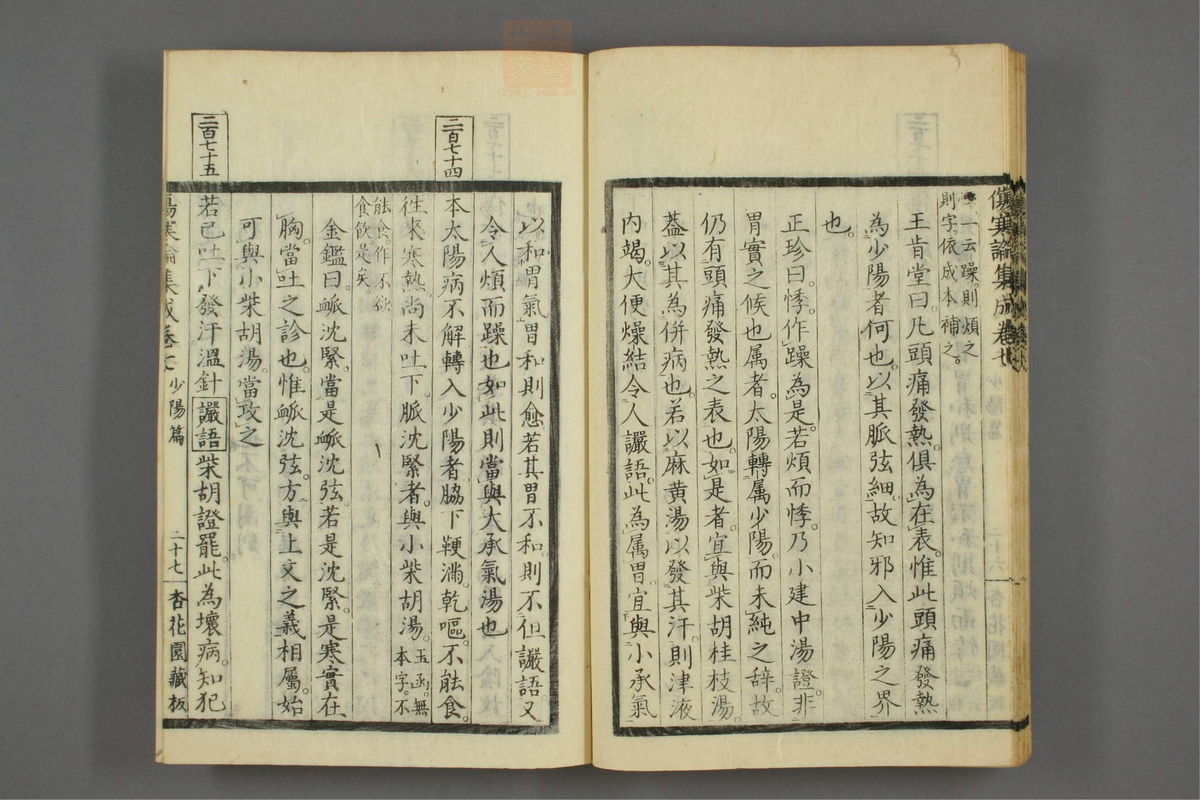 傷寒論集成卷七
一云躁。則煩之
則字。依成本補之。
王肯堂曰。凡頭痛發熱。俱為在表。惟此頭痛發熱
為少陽者何也。以其脈弦細。故知邪入少陽之界
也。
正珍曰。悸。作躁為是。若煩而悸。乃小建中湯證。非
胃實之候也。属者。太陽轉属少陽。而未純之辞。故
仍有頭痛發熱之表也。如是者。宜與柴胡桂枝湯。
蓋以其為併病也。若以麻黄湯以發其汗。則津液
内竭。大便燥結。令人讝語。此為属胃。宜與小承氣
以和胃氣。胃和則愈。若其胃不和。則不但讝語。又
令人煩而躁也。如此則當與大承氣湯也
二百七十四
本太陽病不解。轉入少陽者。脇下鞕滿。乾嘔。不能食。
往來寒熱。尚未吐下。脈沈緊者。與小柴胡湯。玉函。無
本字。不
能食。作不欲
食飲是矣。
金鑑曰。脈沈緊。當是脈沈弦。若是沈緊。是寒實在
胸。當吐之診也。惟脈沈弦。方與上文之義相屬。始
可與小柴胡湯。當改之
二百七十五
若已吐下發汗溫針讝語柴胡證罷。此為壞病。知犯
傷寒論集成卷七 少陽篇 二十七 杏花園藏板